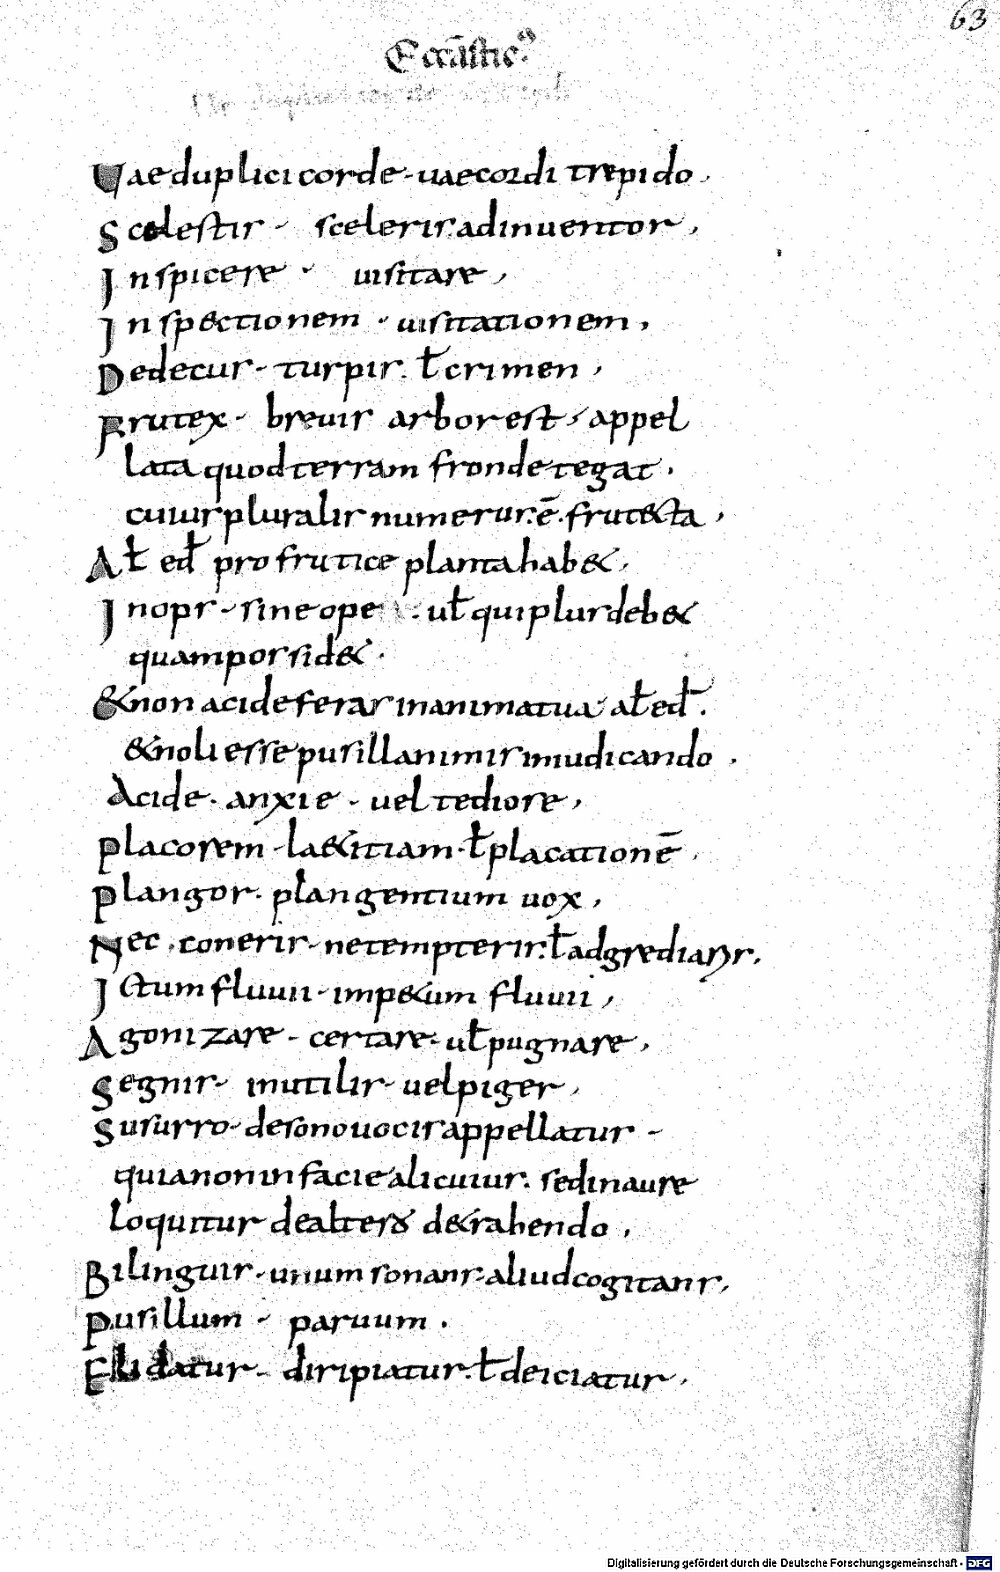 63
Eccl̄astic᾿
Uae duplici corde · uae cordi trepido ·
Scelestis · sceleris adinuentor ,
Inspicere · uisitare ,
Inspectionem · uisitationem ,
Dedecus · turpis · ł crimen ,
Frutex · breuis arbor est · appel
lata quod terram fronde tegat ·
cuius pluralis numerus · ē · frutecta ,
Ał ed̄ pro frutice planta hab& ,
Inops · sine ope · uł qui plus deb&
quam possid& ·
&non acide feras in anima tua ał ed̄ ·
& noli esse pusillanimis in iudicando ·
Acide · anxie · uel tediose ,
Placorem · la&itiam · ł placationē ·
Plangor · plangentium uox ,
Nec · coneris · ne tempteris · ł adgrediaris ,
Ictum fluuii · imp&um fluuii ,
Agonizare · certare · uł pugnare ,
Segnis · inutilis · uel piger ,
Susurro · de sono uocis appellatur ·
quia non in facie alicuius · sed in aure
loquitur de altero d&rahendo ,
Bilinguis · unum sonans · aliud cogitans ,
Pusillum · paruum ·
Elidatur · diripiatur · ł deiciatur ,
Digitalisierung gefördert durch die Deutsche Forschungsgemeinschaft - DFG